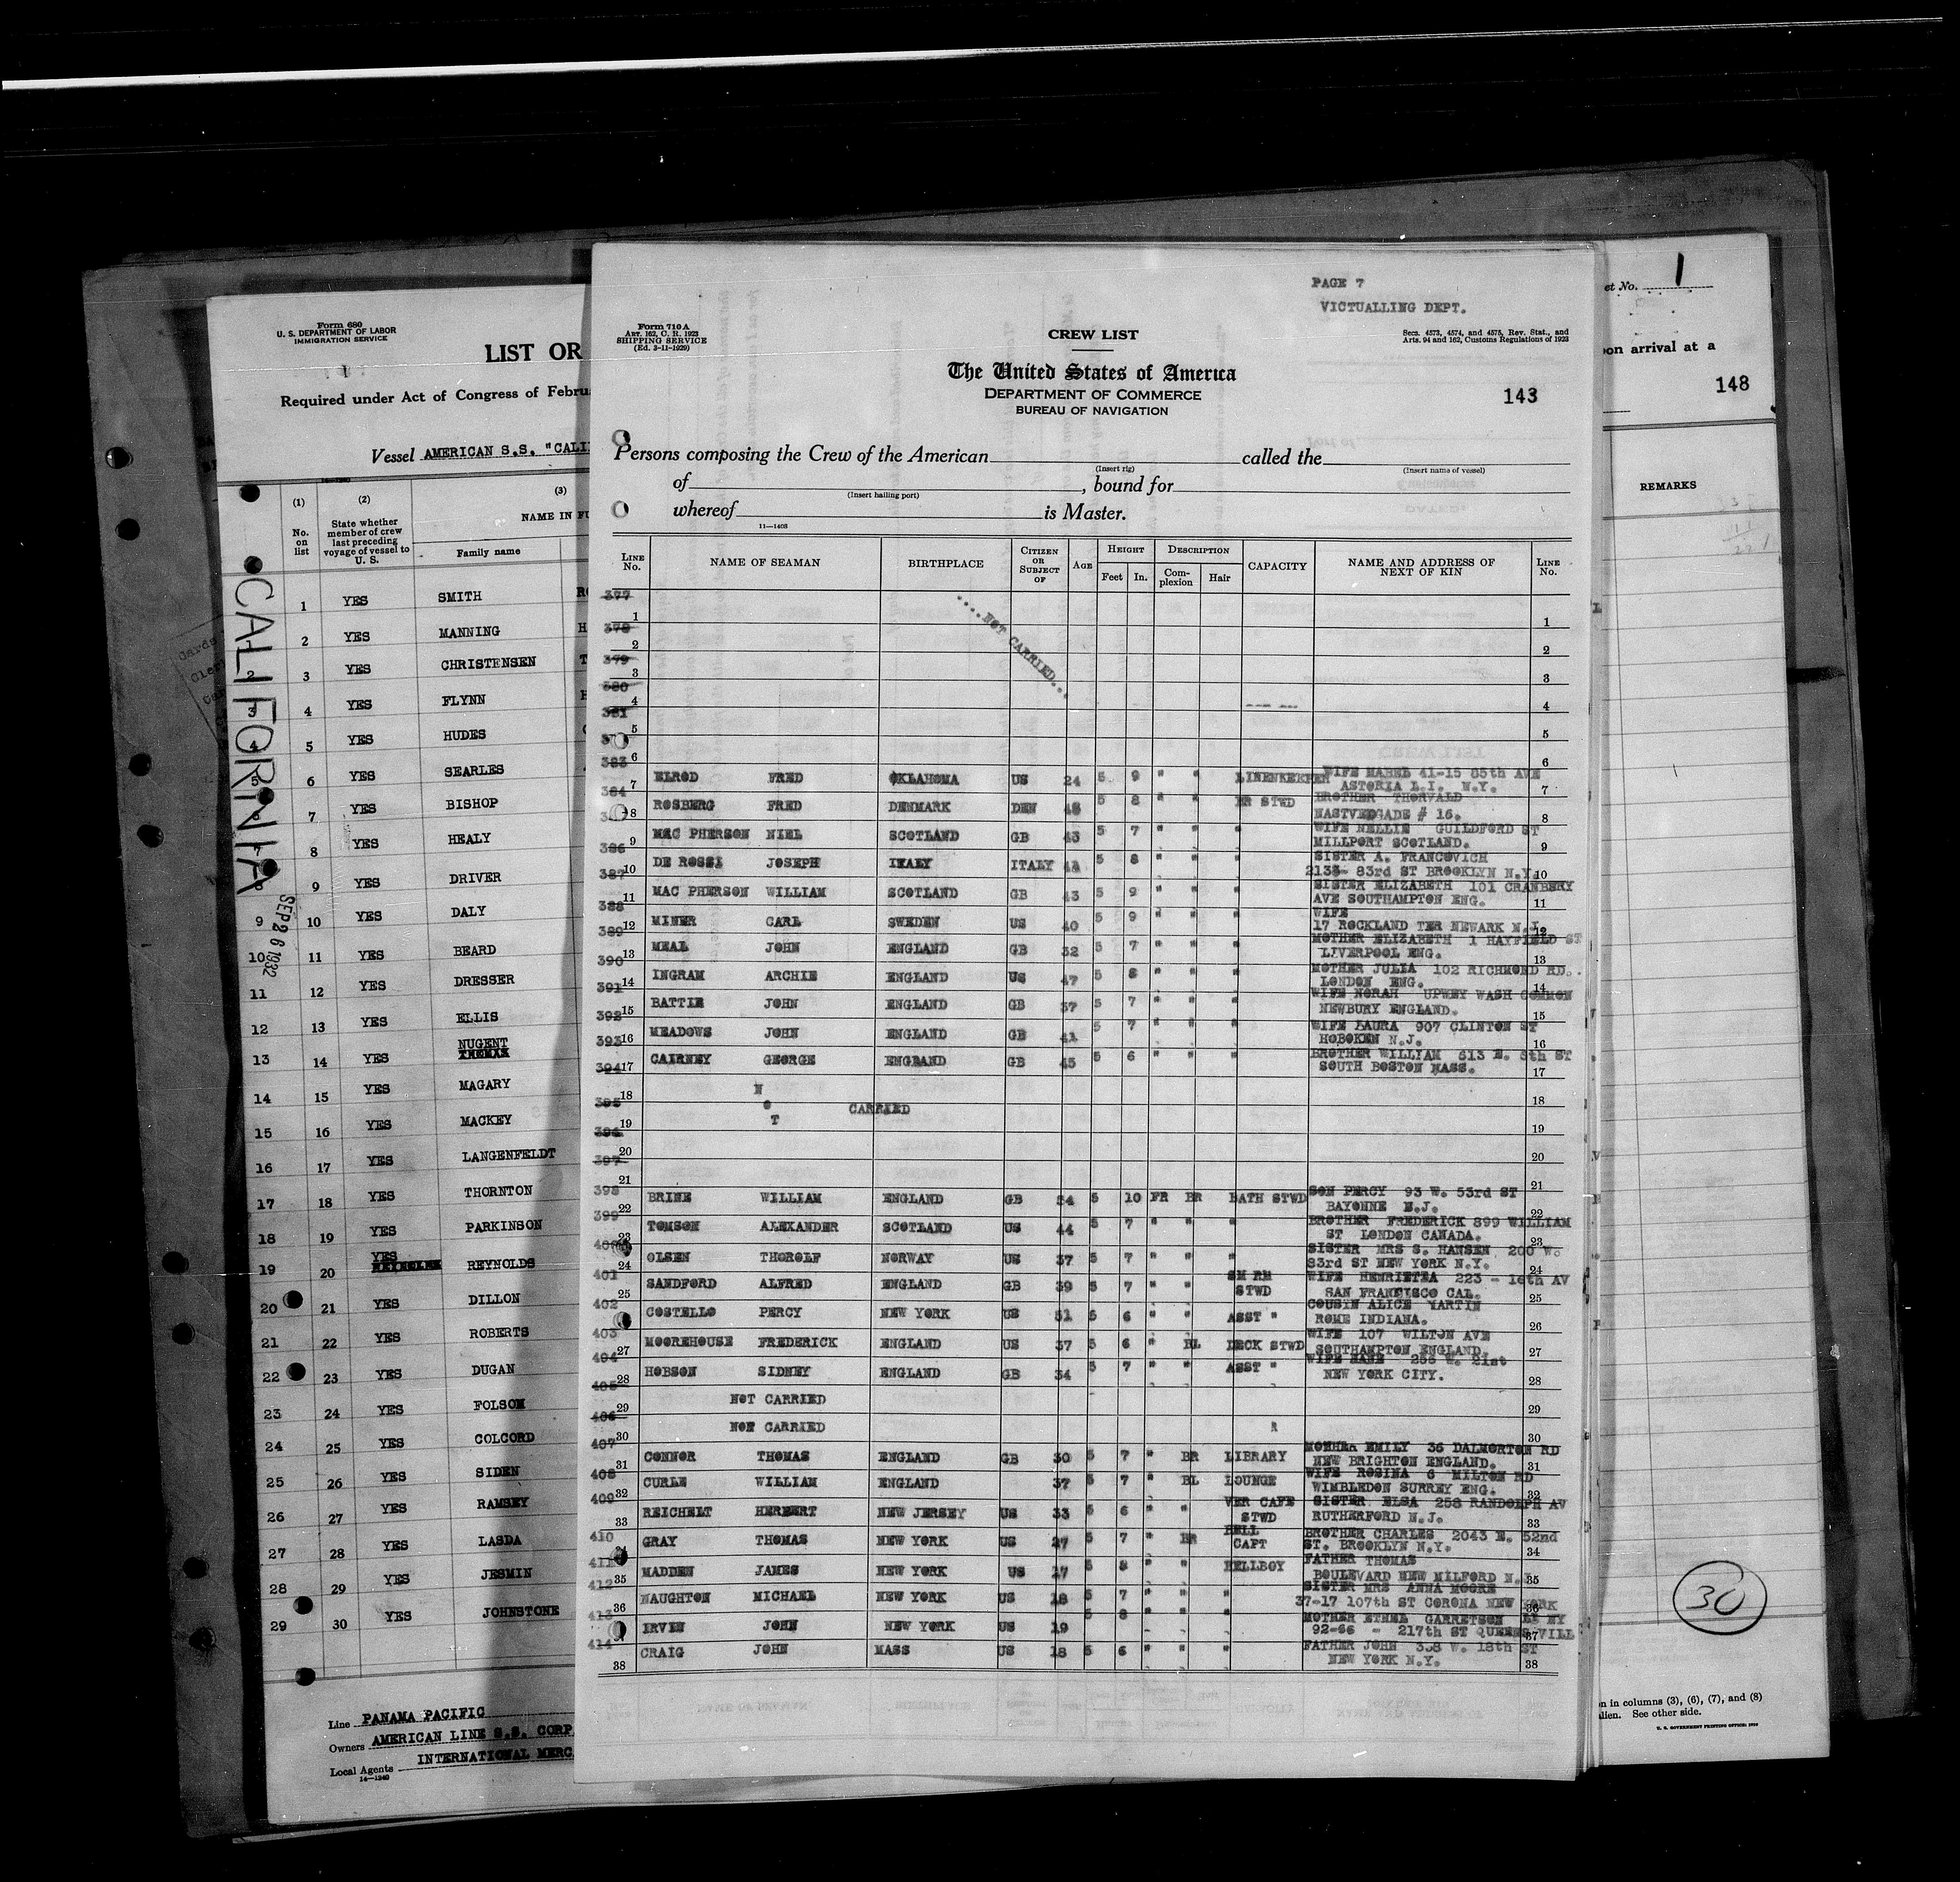 Form 680
U. S. DEPARTMENT OF LABOR
IMMIGRATION SERVICE
LIST OR
Required under Act of Congress of Febru
Vessel AMERICAN S.S. "CALI
(1) (2) (3)
No. on list
State whether member of crew last preceding voyage of vessel to U. S.
NAME IN FU
Family name
CALIFORNIA
SEP 26 1932
1 YES SMITH
1 2 YES MANNING
2 3 YES CHRISTENSEN
3 4 YES FLYNN
4 5 YES HUDES
5 6 YES SEARLES
6 7 YES BISHOP
7 8 YES HEALY
8 9 YES DRIVER
9 10 YES DALY
10 11 YES BEARD
11 12 YES DRESSER
12 13 YES ELLIS
13 14 YES NUGENT
14 15 YES MAGARY
15 16 YES MACKEY
16 17 YES LANGENFELDT
17 18 YES THORNTON
18 19 YES PARKINSON
19 20 YES REYNOLDS
20 21 YES DILLON
21 22 YES ROBERTS
22 23 YES DUGAN
23 24 YES FOLSOM
24 25 YES COLCORD
25 26 YES SIDEN
26 27 YES RAMSEY
27 28 YES LASDA
28 29 YES JESMIN
29 30 YES JOHNSTONE
Line PANAMA PACIFIC
Owners AMERICAN LINE S.S. CORP
Local Agents INTERNATIONAL MERC
14—1240
PAGE 7
VICTUALLING DEPT.
Form 710 A
Art. 162, C. R. 1923
SHIPPING SERVICE
(Ed. 3-11-1929)
CREW LIST
Secs. 4573, 4574, and 4575, Rev. Stat., and
Arts. 94 and 162, Customs Regulations of 1923
The United States of America
DEPARTMENT OF COMMERCE
BUREAU OF NAVIGATION
143
Persons composing the Crew of the American called the
(Insert rig) (Insert name of vessel)
of , bound for
(Insert hailing port)
whereof is Master.
11—1408
LINE No. NAME OF SEAMAN BIRTHPLACE CITIZEN OR SUBJECT OF AGE HEIGHT Feet In. DESCRIPTION Complexion Hair CAPACITY NAME AND ADDRESS OF NEXT OF KIN LINE No.
377
1 1
378
2 2
379
3 3
380
4 4
381
5 5
....NOT CARRIED...
6 6
383
7 ELROD FRED OKLAHOMA US 24 5 9 " " LINENKEEPER WIFE MABEL 41-15 85th AVE ASTORIA L.I. N.Y. 7
384
8 ROSBERG FRED DENMARK DEN 48 5 8 " " BR STWD BROTHER THORVALD NASTVEDGADE # 16. 8
9 MAC PHERSON NIEL SCOTLAND GB 43 5 7 " " " WIFE NELLIE GUILDFORD ST MILLPORT SCOTLAND. 9
386
10 DE ROSSI JOSEPH ITALY ITALY 5 8 " " " SISTER A. FRANCOVICH 2133- 83rd ST BROOKLYN N.Y. 10
387
11 MAC PHERSON WILLIAM SCOTLAND GB 43 5 9 " " " SISTER ELIZABETH 101 CRANBERY AVE SOUTHAMPTON ENG. 11
388
12 MINER CARL SWEDEN US 40 5 9 " " " WIFE 17 ROCKLAND TER NEWARK N.J. 12
389
13 MEAL JOHN ENGLAND GB 32 5 7 " " " MOTHER ELIZABETH 1 HAYFIELD ST LIVERPOOL ENG. 13
390
14 INGRAM ARCHIE ENGLAND US 47 5 8 " " " MOTHER JULIA 102 RICHMOND RD. LONDON ENG. 14
391
15 BATTIE JOHN ENGLAND GB 37 5 7 " " " WIFE NORAH UPWEY WASH COMMON NEWBURY ENGLAND. 15
392
16 MEADOWS JOHN ENGLAND GB 41 5 7 " " " WIFE LAURA 907 CLINTON ST HOBOKEN N.J. 16
393
17 CAIRNEY GEORGE ENGLAND GB 45 5 6 " " " BROTHER WILLIAM 613 E. 8th ST SOUTH BOSTON MASS. 17
394
18 N 18
395
19 O T CARRIED 19
396
20 20
397
21 21
398
22 BRINE WILLIAM ENGLAND GB 54 5 10 FR BR BATH STWD SON PERCY 93 W. 53rd ST BAYONNE N.J. 22
399
23 TOMSON ALEXANDER SCOTLAND US 44 5 7 " " " BROTHER FREDERICK 899 WILLIAM ST LONDON CANADA. 23
400
24 OLSEN THOROLF NORWAY US 37 5 7 " " " SISTER MRS S. HANSEN 200 W. 83rd ST NEW YORK N.Y. 24
401
25 SANDFORD ALFRED ENGLAND GB 39 5 7 " " SM RM STWD WIFE HENRIETTA 223 - 16th AV SAN FRANCISCO CAL. 25
402
26 COSTELLO PERCY NEW YORK US 51 5 6 " " ASST " COUSIN ALICE MARTIN ROME INDIANA. 26
403
27 MOOREHOUSE FREDERICK ENGLAND US 37 5 6 " BL DECK STWD WIFE 107 WILTON AVE SOUTHAMPTON ENGLAND. 27
404
28 HOBSON SIDNEY ENGLAND GB 34 5 7 " " ASST " WIFE 255 W. 21st NEW YORK CITY. 28
405
29 NOT CARRIED 29
406
30 NOT CARRIED R 30
407
31 CONNOR THOMAS ENGLAND GB 30 5 7 " BR LIBRARY MOTHER EMILY 36 DALMORTON RD NEW BRIGHTON ENGLAND. 31
408
32 CURLE WILLIAM ENGLAND 37 5 7 " BL LOUNGE WIFE ROSINA 6 MILTON RD WIMBLEDON SURREY ENG. 32
409
33 REICHELT HERBERT NEW JERSEY US 33 5 6 " " VER CAFE STWD SISTER ELSA 258 RANDOLPH AV RUTHERFORD N.J. 33
410
GRAY THOMAS NEW YORK US 27 5 7 " BR BELL CAPT BROTHER CHARLES 2043 E. 52nd ST. BROOKLYN N.Y. 34
411
35 MADDEN JAMES NEW YORK US 17 5 8 " " BELLBOY FATHER THOMAS BOULEVARD NEW MILFORD N.J. 35
412
36 NAUGHTON MICHAEL NEW YORK US 18 5 7 " " " SISTER MRS ANNA MOORE 37-17 107th ST CORONA NEW YORK 36
413
IRVEN JOHN NEW YORK US 19 5 8 " " " MOTHER ETHEL GARRETSON LI NY 92-66 - 217th ST QUEENS VILL 37
414
38 CRAIG JOHN MASS US 18 5 6 " " " FATHER JOHN 358 W. 18th ST NEW YORK N.Y. 38
et No. 1
on arrival at a
148
REMARKS
30
n in columns (3), (6), (7), and (8)
alien. See other side.
U. S. GOVERNMENT PRINTING OFFICE: 1929